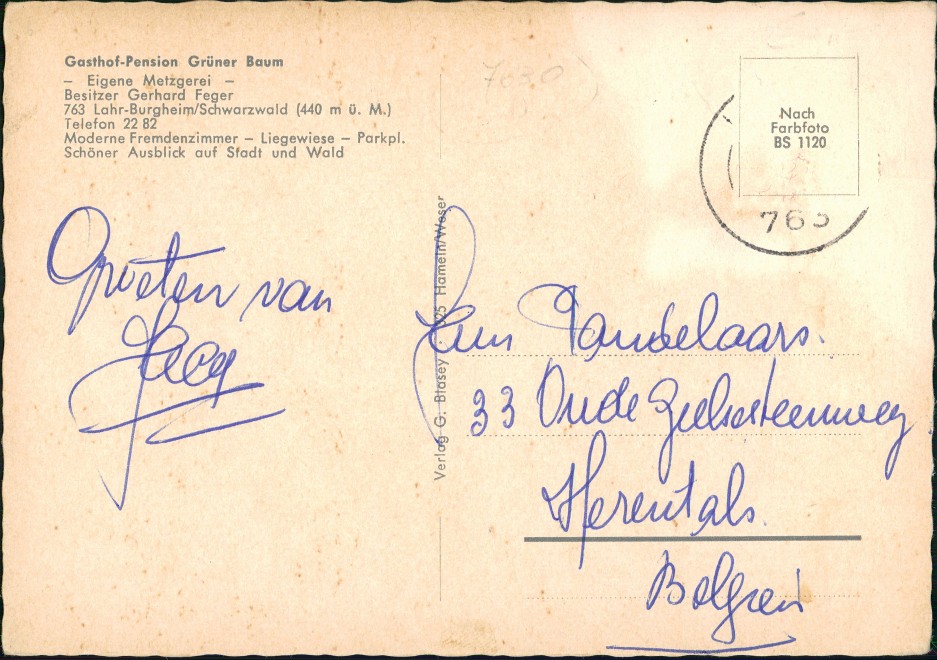 Gasthof-Pension Grüner Baum
— Eigene Metzgerei —
Besitzer Gerhard Feger
763 Lahr-Burgheim/Schwarzwald (440 m ü. M.)
Telefon 22 82
Moderne Fremdenzimmer — Liegewiese — Parkpl.
Schöner Ausblick auf Stadt und Wald
7630
Nach
Farbfoto
BS 1120
763
Verlag G. Blasey 325 Hameln/Weser
Groeten van
33 Oude
Herentals.
Belgïen